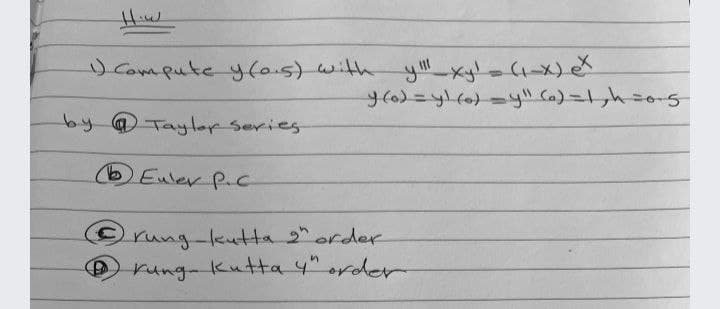 H.w
1) Compute y(0.5) with y''' - xy' = (1-x) eˣ
y(0) = y'(0) = y''(0) = 1, h = 0.5
by ⓐ Taylor series
ⓑ Euler P.C
Ⓒ rung-kutta 2ⁿ order
Ⓓ rung-kutta 4ⁿ order